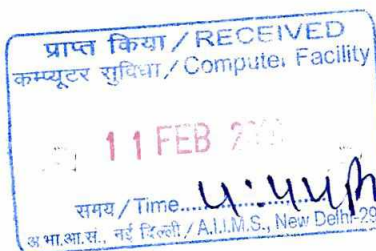 प्राप्त किया / RECEIVED
कम्प्यूटर सुविधा / Computer Facility
11 FEB
समय / Time.....4:44
अ.भा.आ.सं., नई दिल्ली / A.I.I.M.S., New Delhi-29